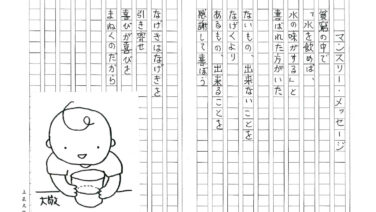 マンスリー・メッセージ
貧窮の中で
「水を飲めば、
水の味がする」と
喜ばれた方がいた
ないもの、出来ないことを
なげくより
あるもの、出来ることを
感謝して喜ぼう
なげきはなげきを
引き寄せ
喜びが喜びを
まねくのだから
大敬